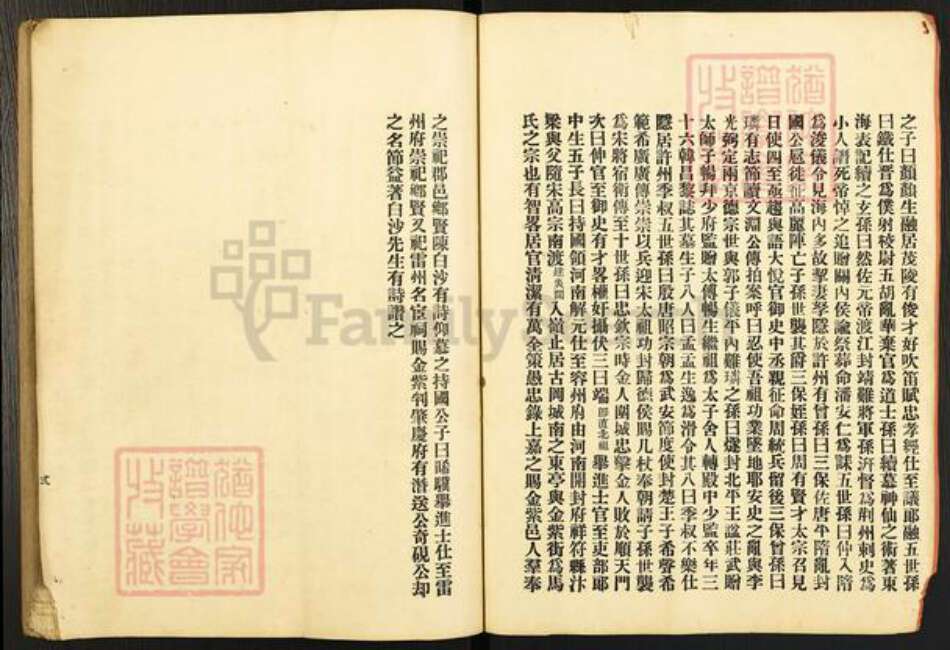 之子曰顏顏生融居茂陵有俊才好吹笛賦忠孝經仕至議郎融五世孫
曰鐵仕晋為僕射校尉五胡亂華棄官為道士孫曰續墓神仙之術著東
海表記續之玄孫曰然佐元帝渡江封端難將軍孫浒督為荆州刺史為
小人譖死帝悼之追贈關內侯諭祭葬命潘安仁為誄五世孫曰仲入隋
為浚儀令見海內多故挈妻孥隱於許州有曾孫曰三保佐唐平隋亂封
國公扈徒征高麗陣亡子孫世襲其爵三保姪孫曰周有賢才太宗召見
日使四至亟趨與語大悅官御史中丞親征命周統兵留後三保曾孫曰
璘有志節讀文淵公傳拍案呼曰忍使吾祖功業墜地耶安史之亂與李
光弼定兩京德宗世與郭子儀平內難璘之孫曰燧封北平王諡莊武贈
太師子暢拜少府監贈太傅暢生繼祖為太子舍人轉殿中少監卒年三
十六韓昌黎誌其墓生子八人曰孟孟生逸為滑令其八曰季叔不樂仕
隱居許州季叔五世孫曰殷唐昭宗朝為武安節度使封楚王子希聲希
範希廣廣傳崇崇以兵迎宋太祖功封歸德侯賜几杖奉朝請子孫世襲
為宋將宿衛傳至十世孫曰忠欽宗時金人圍城忠擊金人敗於順天門
次曰仲官至御史有才畧權奸攝伏三曰端即直北祖舉進士官至吏部郎
中生五子長曰持國領河南解元仕至容州府由河南開封府祥符縣汴
梁與父隨宋高宗南渡入嶺止居古岡城南之東亭與金紫街為馬
氏之宗也有智畧居官清潔有萬全策愚忠錄上嘉之賜金紫邑人羣奉
之崇祀郡邑鄉賢陳白沙有詩仰墓之持國公子曰晞驥舉進士仕至雷
州府崇祀鄉賢又祀雷州名宦祠賜金紫判肇慶府有潛送公奇硯公却
之名節益著白沙先生有詩讚之
弍